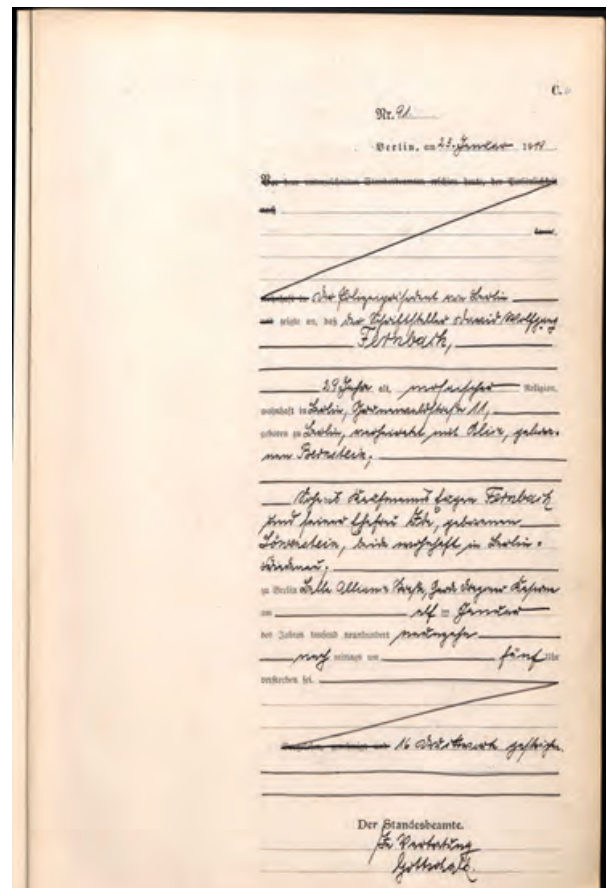 C.
Nr. 91
Berlin, am 23. Januar 1919
Vor dem unterzeichneten Standesbeamten erschien heute, der Persönlichkeit
nach
kannt,
Der Polizeipräsident von Berlin
und zeigte an, daß der Schriftsteller David Wolfgang
Fernbach,
29 Jahre alt, mosaischer Religion,
wohnhaft in Berlin, 11,
geboren zu Berlin, verheiratet mit Alice, gebore-
nen Bernstein,
Sohn des Kaufmanns Eugen Fernbach
und seiner Ehefrau Ida, geborenen
Löwenstein, beide wohnhaft in Berlin-
Friedenau,
zu Berlin Belle Alliance Straße, Garde Dragoner Kaserne
am elf ten Januar
des Jahres tausend neunhundert neunzehn
nach mittags um fünf Uhr
verstorben sei.
16 Druckworte gestrichen.
Der Standesbeamte.
In Vertretung